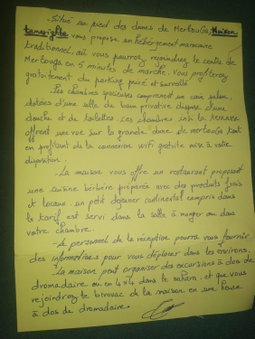 - Situé au pied des dunes de Merzouga, Maison
tamurighte vous propose un hébergement marocaine
traditionnel, où vous pourrez rejoindre le centre de
Merzouga en 5 minutes de marche. vous profiterez
gratuitement du parking privé et surveillé.
- Les chambres spacieuses comprennent un coin salon,
dotées d'une salle de bain privative dispose d'une
douche et de toilettes, ces chambres et la terrasse
offrent une vue sur la grande dune de merzouga tout
en profitant de la connexion wifi gratuite mise à votre
disposition.
- La maison vous offre un restaurant proposant
une cuisine berbère préparée avec des produits frais
et locaux, un petit déjeuner continental compris dans
le tarif est servi dans la salle à manger ou dans
votre chambre.
- Le personnel de la réception pourra vous fournir
des informations pour vous déplacer dans les environs.
- La maison peut organiser des excursions à dos de
dromadaire ou en 4x4 dans le sahara, et que vous
rejoindrez le bivouac de la maison en une heure
à dos de dromadaire.